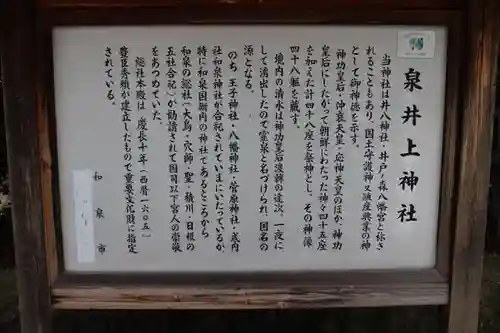 泉井上神社
当神社は井八神社・井戸ノ森八幡宮と称さ
れることもあり、国土守護神又殖産興業の神
として御神徳を示す。
神功皇后・沖哀天皇・応神天皇のほか、神功
皇后にしたがって朝鮮にわたった神々四十五座
を加えた計四十八座を祭神とし、その神像
四十八躯を蔵す。
境内の清水は神功皇后渡韓の途次、一夜に
して湧出したので霊泉と名づけられ、国名の
源となる。
のち、王子神社・八幡神社・菅原神社・蔵内
社和泉神社が合祀されていまにいたっているが、
特に和泉国衙内の神社であるところから
和泉の総社（大鳥・穴師・聖・積川・日根の
五社合祀）が勧請されて国司以下宮人の崇敬
をあつめていた。
総社本殿は、慶長十年（西暦一六〇五）
豊臣秀頼が建立したもので重要文化財に指定
されている。
和泉市